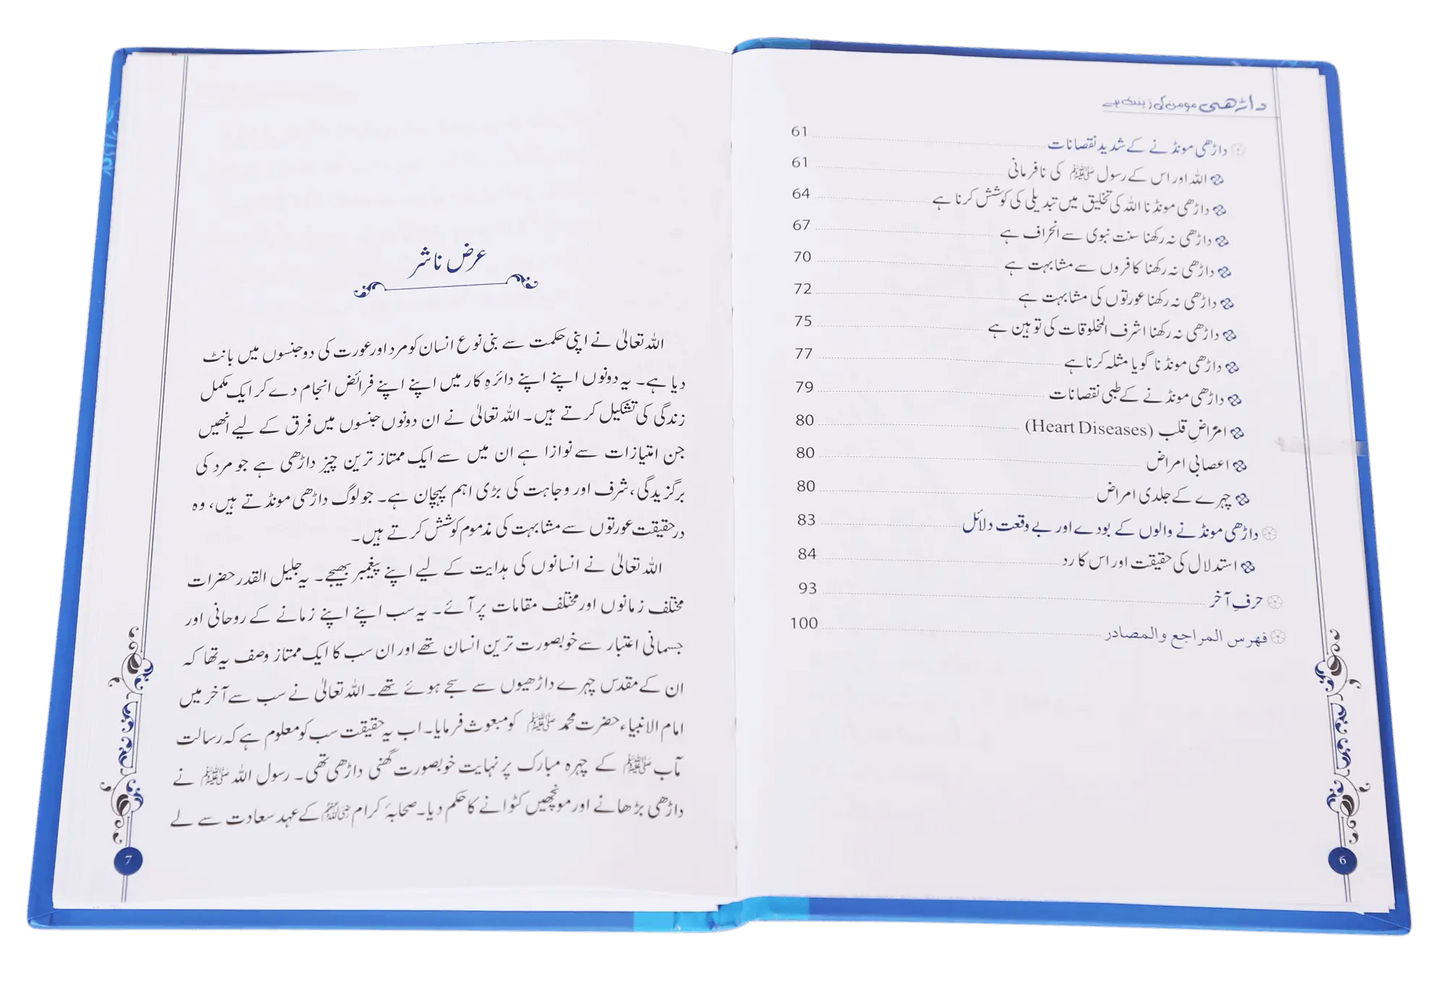 داڑھی مومن کی زینت ہے
داڑھی مونڈنے کے شدید نقصانات 61
اللہ اور اس کے رسول ﷺ کی نافرمانی 61
داڑھی مونڈنا اللہ کی تخلیق میں تبدیلی کی کوشش کرنا ہے 64
داڑھی نہ رکھنا سنت نبوی سے انحراف ہے 67
داڑھی نہ رکھنا کافروں سے مشابہت ہے 70
داڑھی نہ رکھنا عورتوں کی مشابہت ہے 72
داڑھی نہ رکھنا اشرف المخلوقات کی توہین ہے 75
داڑھی مونڈنا گویا مثلہ کرنا ہے 77
داڑھی مونڈنے کے طبی نقصانات 79
امراضِ قلب (Heart Diseases) 80
اعصابی امراض 80
چہرے کے جلدی امراض 80
داڑھی مونڈنے والوں کے بودے اور بے وقعت دلائل 83
استدلال کی حقیقت اور اس کا رد 84
حرفِ آخر 93
فهرس المراجع والمصادر 100
6
عرض ناشر
اللہ تعالیٰ نے اپنی حکمت سے بنی نوع انسان کو مرد اور عورت کی دو جنسوں میں بانٹ
دیا ہے۔ یہ دونوں اپنے اپنے دائرہ کار میں اپنے اپنے فرائض انجام دے کر ایک مکمل
زندگی کی تشکیل کرتے ہیں۔ اللہ تعالیٰ نے ان دونوں جنسوں میں فرق کے لیے انھیں
جن امتیازات سے نوازا ہے ان میں سے ایک ممتاز ترین چیز داڑھی ہے جو مرد کی
برگزیدگی، شرف اور وجاہت کی بڑی اہم پہچان ہے۔ جو لوگ داڑھی مونڈتے ہیں، وہ
درحقیقت عورتوں سے مشابہت کی مذموم کوشش کرتے ہیں۔
اللہ تعالیٰ نے انسانوں کی ہدایت کے لیے اپنے پیغمبر بھیجے۔ یہ جلیل القدر حضرات
مختلف زمانوں اور مختلف مقامات پر آئے۔ یہ سب اپنے اپنے زمانے کے روحانی اور
جسمانی اعتبار سے خوبصورت ترین انسان تھے اور ان سب کا ایک ممتاز وصف یہ تھا کہ
ان کے مقدس چہرے داڑھیوں سے سجے ہوئے تھے۔ اللہ تعالیٰ نے سب سے آخر میں
امام الانبیاء حضرت محمد ﷺ کو مبعوث فرمایا۔ اب یہ حقیقت سب کو معلوم ہے کہ رسالت
مآب ﷺ کے چہرہ مبارک پر نہایت خوبصورت گھنی داڑھی تھی۔ رسول اللہ ﷺ نے
داڑھی بڑھانے اور مونچھیں کٹوانے کا حکم دیا۔ صحابۂ کرام رضی اللہ عنہم کے عہد سعادت سے لے
7